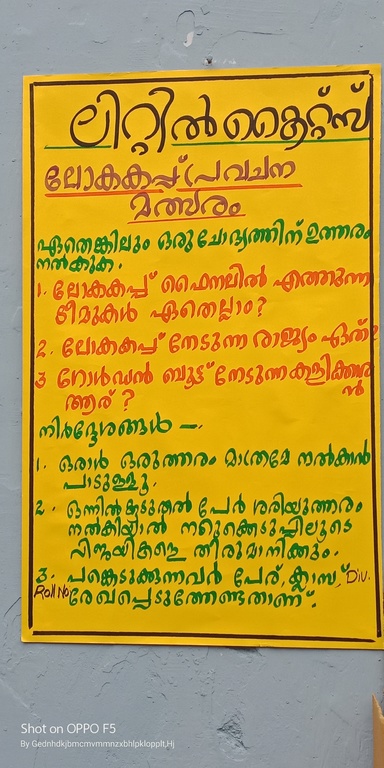 ലിറ്റിൽ കൈറ്റ്സ്
ലോകകപ്പ് പ്രവചന
മത്സരം
ഏതെങ്കിലും ഒരു ചോദ്യത്തിന് ഉത്തരം
നൽകുക.
1. ലോകകപ്പ് ഫൈനലിൽ എത്തുന്ന
ടീമുകൾ ഏതെല്ലാം?
2. ലോകകപ്പ് നേടുന്ന രാജ്യം ഏത്?
3 ഗോൾഡൻ ബൂട്ട് നേടുന്ന കളിക്കാരൻ
ആര് ?
നിർദ്ദേശങ്ങൾ —.
1. ഒരാൾ ഒരുത്തരം മാത്രമേ നൽകാൻ
പാടുള്ളൂ.
2. ഒന്നിൽ കൂടുതൽ പേർ ശരിയുത്തരം
നൽകിയാൽ നറുക്കെടുപ്പിലൂടെ
വിജയികളെ തീരുമാനിക്കും.
3. പങ്കെടുക്കുന്നവർ പേര്, ക്ലാസ്, Div.
Roll No രേഖപ്പെടുത്തേണ്ടതാണ്.
Shot on OPPO F5
By Gednhdkjbmcmvmmnzxbhlpklopplt,Hj